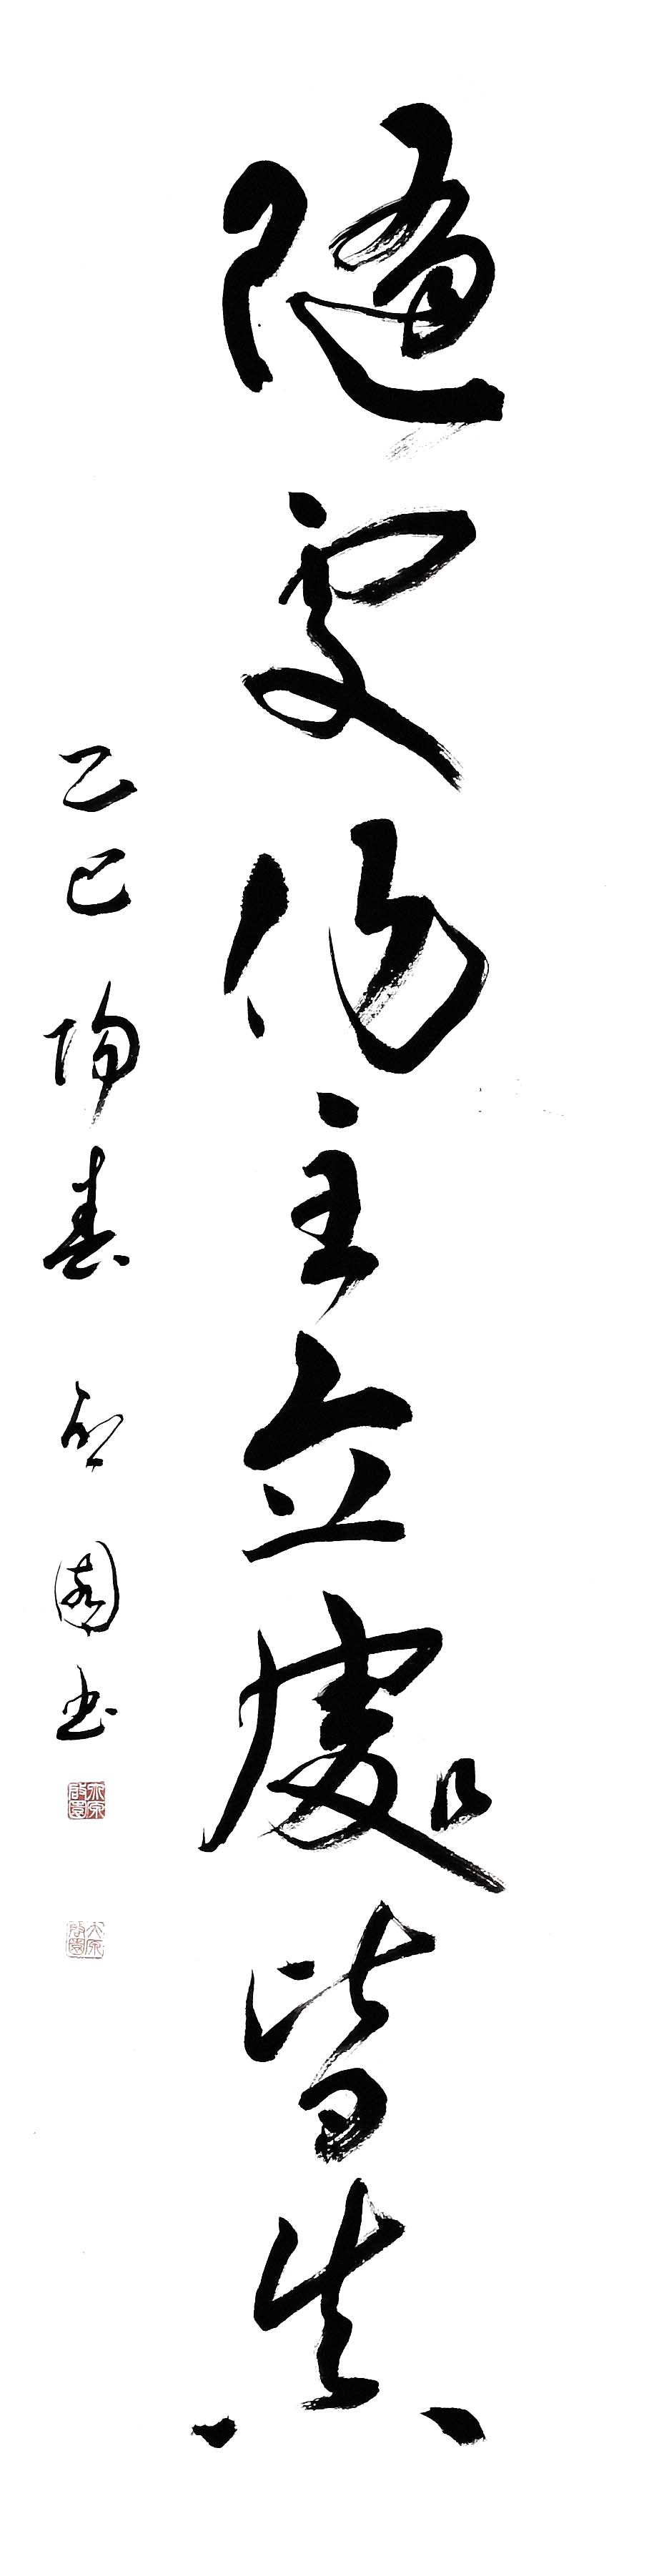 隨處作主立處皆真
乙巳 陽春 啟園書